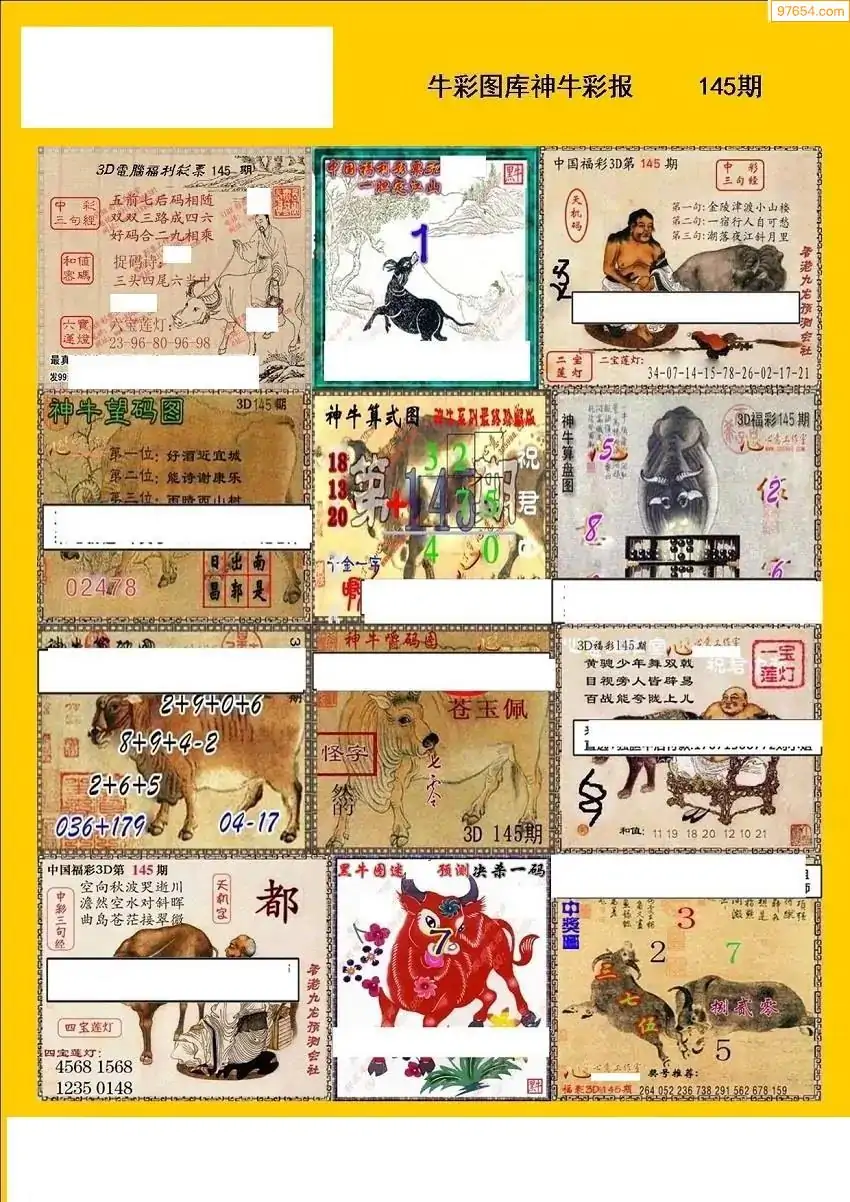 97654.com
牛彩图库神牛彩报 145期
3D電腦福利彩票 145 期
中彩
三句經
五前七后码相随
双双三路成四六
好码合二九相乘
和值
密碼
捉码诗:
三头四尾六当中
六寶
蓮燈
六宝莲灯:
23-96-80-96-98
最真
发99
中国福利彩票
一胆定江山
1
中国福彩3D第 145 期
中彩
三句經
天机码
第一句: 金陵津渡小山楼
第二句: 一宿行人自可愁
第三句: 潮落夜江斜月里
香港九龙预测会社
二宝
莲灯
二宝莲灯:
34-07-14-15-78-26-02-17-21
神牛望码图
3D145期
第一位: 好酒近宜城
第二位: 能诗谢康乐
第三位: 雨晴西山树
日出南
昌郭是
02478
神牛算式图
18
13
20
第145期
3 2
+ 7 5
4 0
祝君
神牛算盘图
3D福彩145期
心意工作室
5
2
8
6
2+9+0+6
8+9+4-2
2+6+5
036+179
04-17
神牛嚼码图
苍玉佩
怪字
七零
然的
3D 145期
3D福彩145期
一宝
莲灯
黄骢少年舞双戟
目视旁人皆辟易
百战能夸陇上儿
和值: 11 19 18 20 12 10 21
中国福彩3D第 145期
中彩三句经
空向秋波哭逝川
澹然空水对斜晖
曲岛苍茫接翠微
天机字
都
香港九龙预测会社
四宝莲灯
四宝莲灯:
4568 1568
1235 0148
黑牛图迷 预测决杀一码
7
中奖图
3
2
7
三七伍
捌贰零
5
心意工作室
奖号推荐:
福彩3D145期 264 052 236 738 291 562 678 159